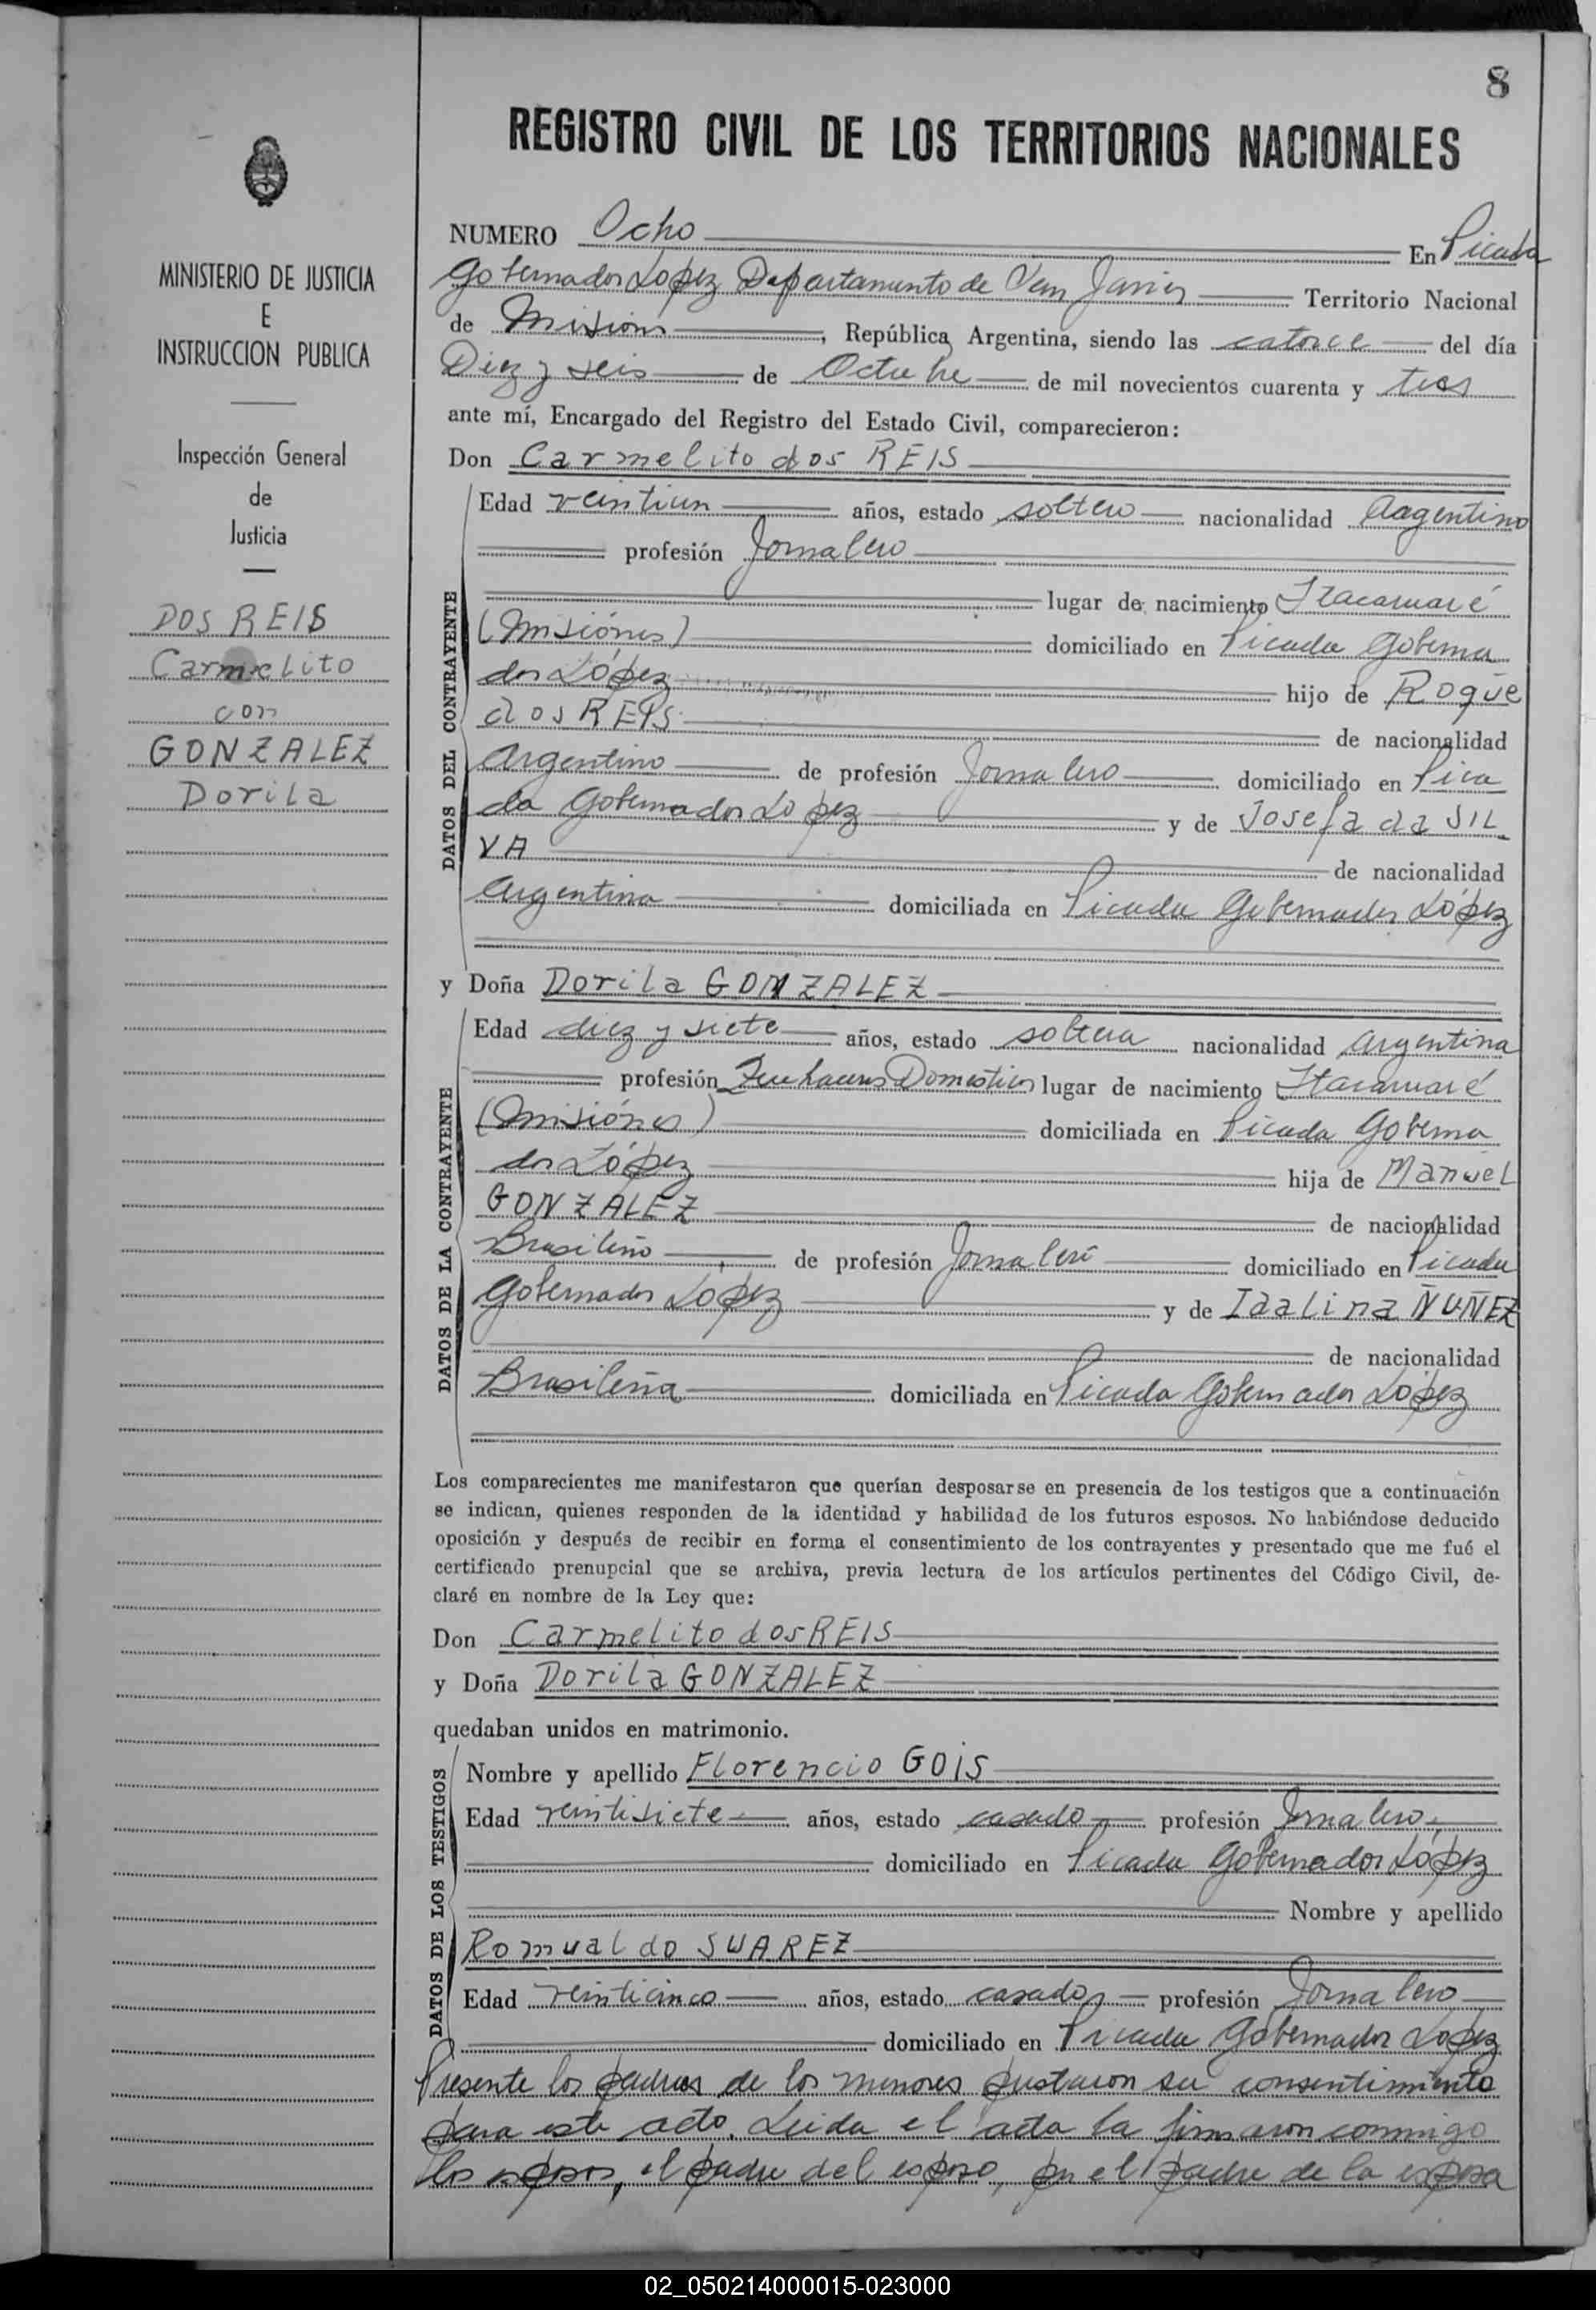 8
REGISTRO CIVIL DE LOS TERRITORIOS NACIONALES
MINISTERIO DE JUSTICIA
E
INSTRUCCION PUBLICA
Inspección General
de
Justicia
DOS REIS
Carmelito
con
GONZALEZ
Dorila
NUMERO Ocho En Picada
Gobernador López Departamento de San Javier Territorio Nacional
de Misiones, República Argentina, siendo las catorce del día
Diez y seis de Octubre de mil novecientos cuarenta y tres
ante mí, Encargado del Registro del Estado Civil, comparecieron:
Don Carmelito dos REIS
DATOS DEL CONTRAYENTE
Edad veintiun años, estado soltero nacionalidad Argentino
profesión Jornalero
lugar de nacimiento Itacaruaré
(Misiónes) domiciliado en Picada Goberna
dor López hijo de Roque
dos REIS de nacionalidad
Argentino de profesión Jornalero domiciliado en Pica
da Gobernador López y de Josefa da SIL
VA de nacionalidad
Argentina domiciliada en Picada Gobernador López
y Doña Dorila GONZALEZ
DATOS DE LA CONTRAYENTE
Edad diez y siete años, estado soltera nacionalidad argentina
profesión Quehaceres Domesticos lugar de nacimiento Itacaruaré
(Misiónes) domiciliada en Picada Goberna
dor López hija de Manuel
GONZALEZ de nacionalidad
Brasileño de profesión Jornalero domiciliado en Picada
Gobernador López y de Idalina NUÑEZ
de nacionalidad
Brasileña domiciliada en Picada Gobernador López
Los comparecientes me manifestaron que querían desposarse en presencia de los testigos que a continuación
se indican, quienes responden de la identidad y habilidad de los futuros esposos. No habiéndose deducido
oposición y después de recibir en forma el consentimiento de los contrayentes y presentado que me fué el
certificado prenupcial que se archiva, previa lectura de los artículos pertinentes del Código Civil, de-
claré en nombre de la Ley que:
Don Carmelito dos REIS
y Doña Dorila GONZALEZ
quedaban unidos en matrimonio.
DATOS DE LOS TESTIGOS
Nombre y apellido Florencio GOIS
Edad veintisiete años, estado casado profesión Jornalero
domiciliado en Picada Gobernador López
Nombre y apellido
Romualdo SUAREZ
Edad veinticinco años, estado casado profesión Jornalero
domiciliado en Picada Gobernador López
Presente los padres de los menores prestaron su consentimiento
para este acto. Leida el acta la firmaron conmigo
los esposos, el padre del esposo, por el padre de la esposa
02_050214000015-023000